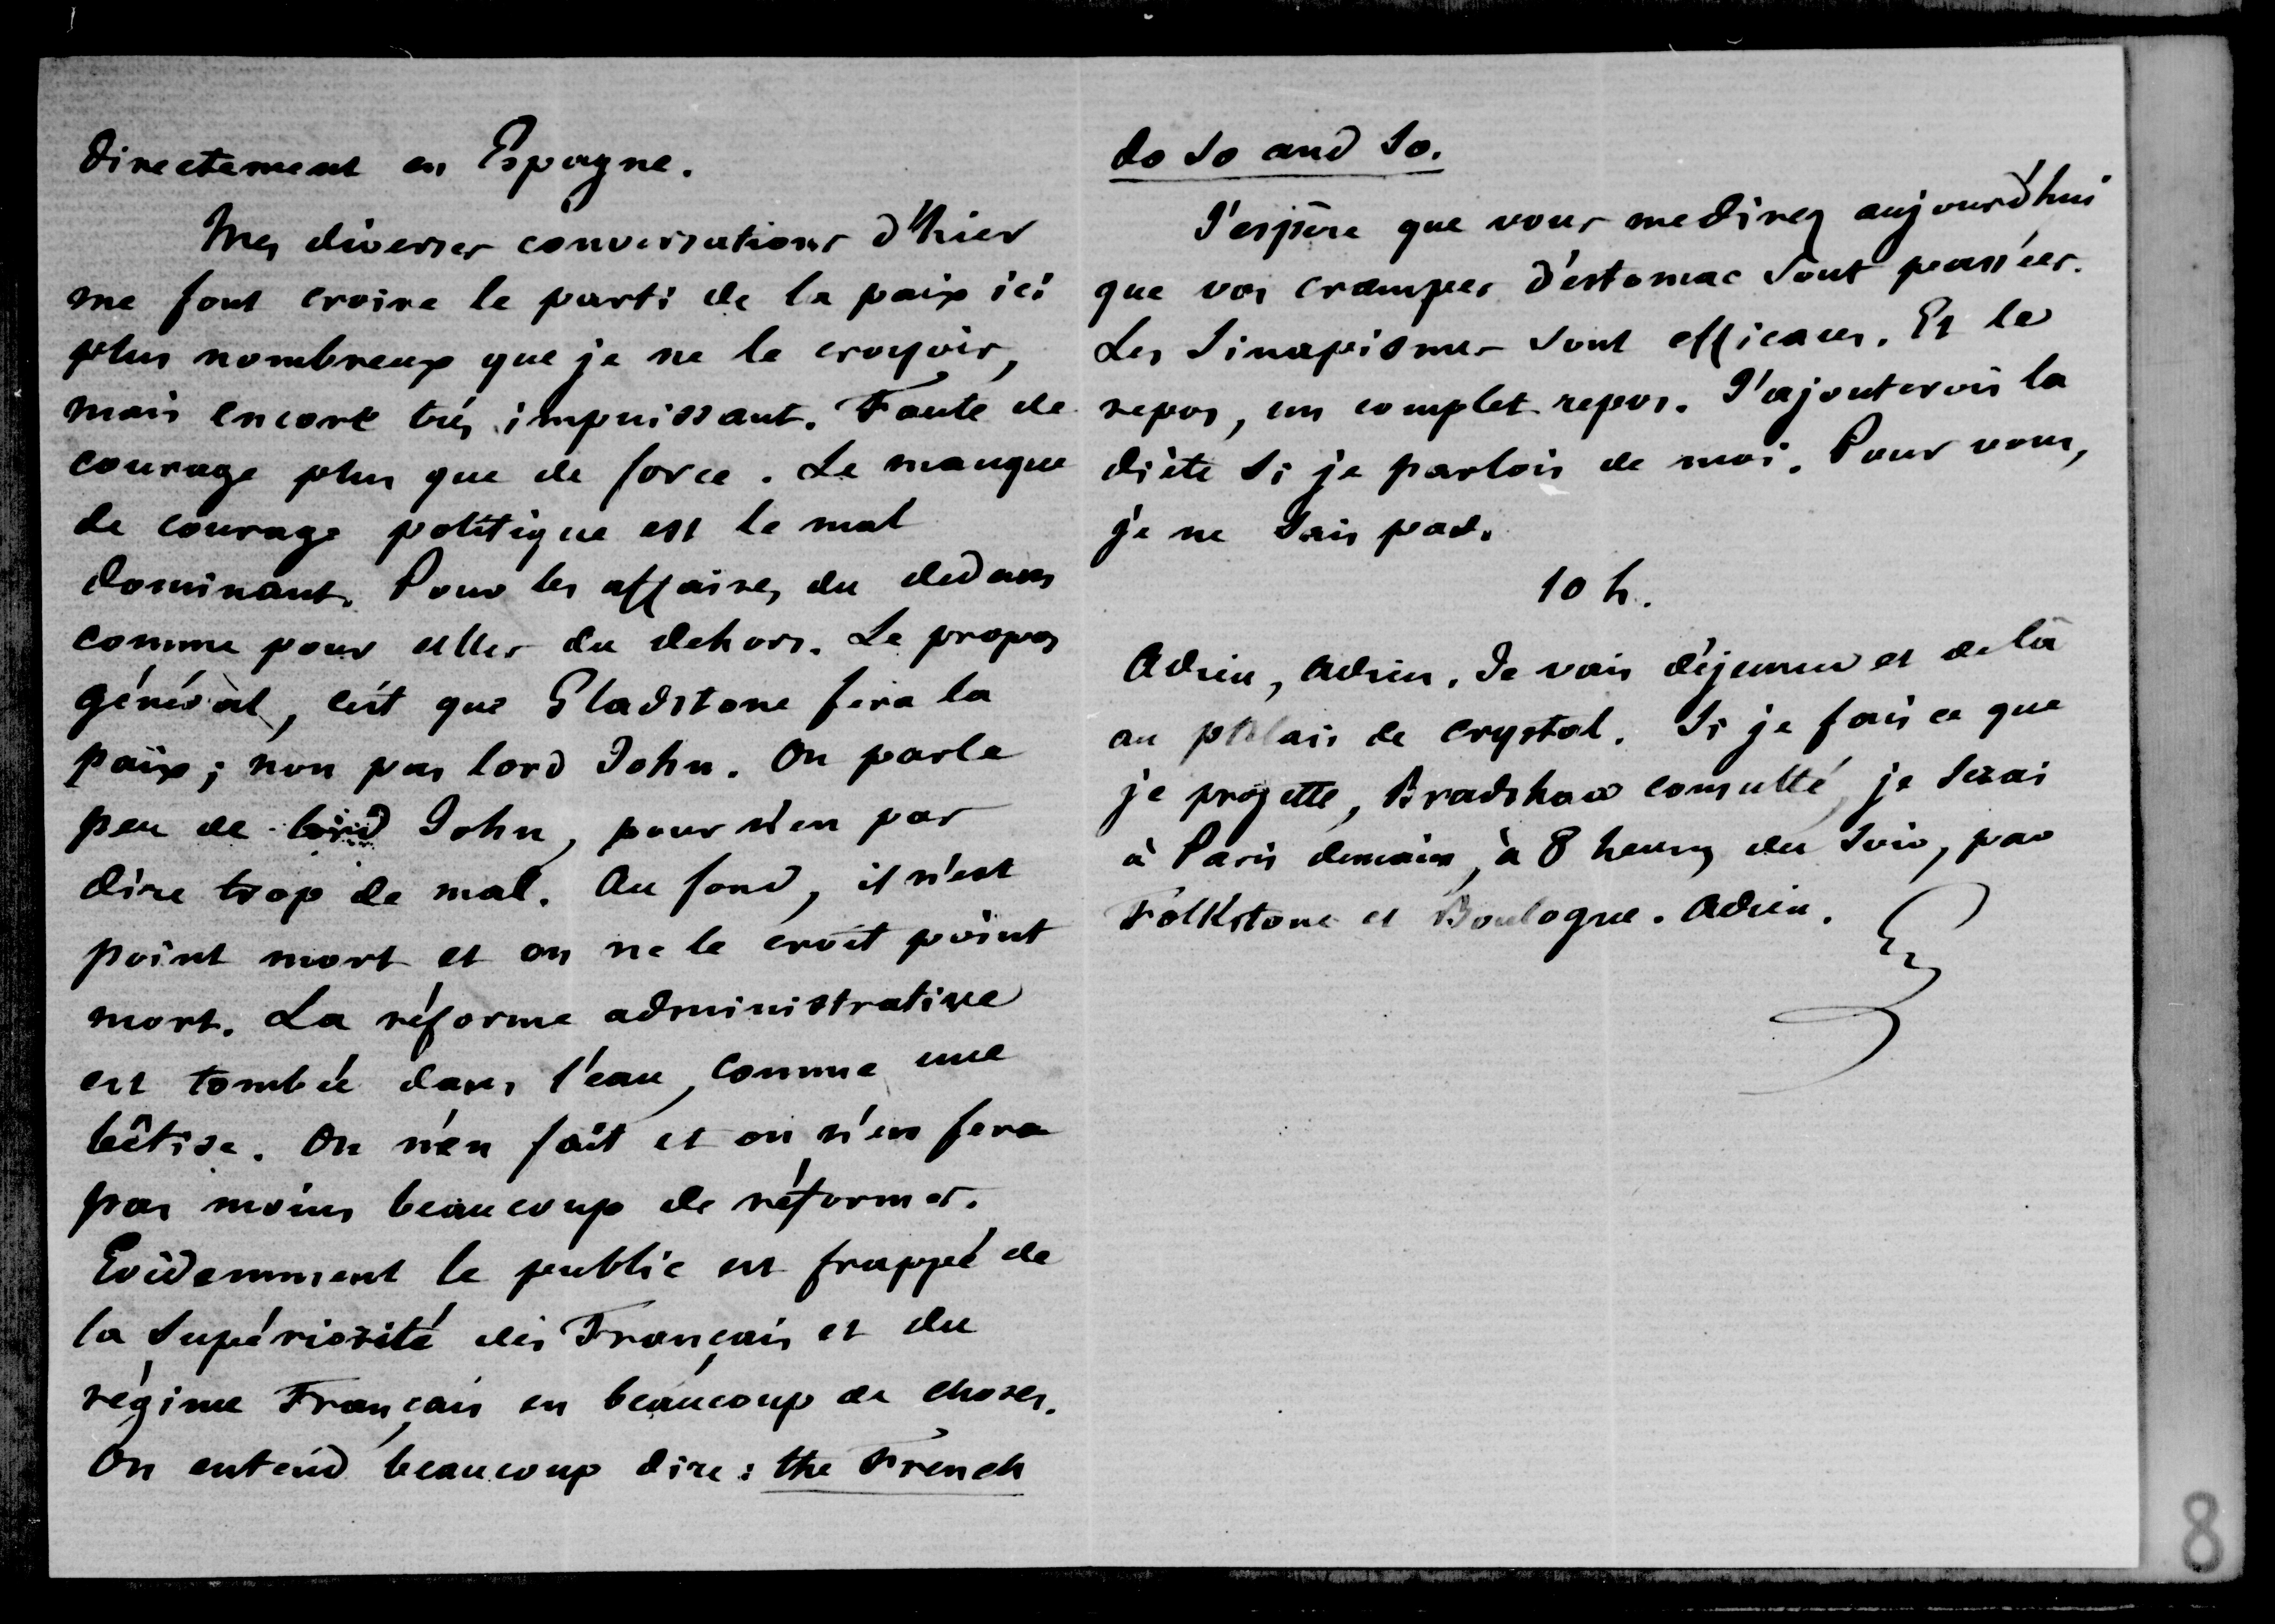 directement en Espagne.
Mes diverses conversations d'hier
me font croire le parti de la paix ici
plus nombreux que je ne le croyois,
mais encore très impuissant. Faute de
courage plus que de force. Le manque
de courage politique est le mal
dominant. Pour les affaires du dedans
comme pour elles du dehors. Le propos
général, c'est que Gladstone fera la
paix ; non pas lord John. On parle
peu de lord John, pour n'en pas
dire trop de mal. Au fond, il n'est
point mort et on ne le croit point
mort. La réforme administrative
est tombée dans l'eau, comme une
bêtise. On n'en fait et on n'en fera
pas moins beaucoup de réformes.
Evidemment le public est frappé de
la supériorité des Français et du
régime Français en beaucoup de choses.
On entend beaucoup dire : the French
do so and so.
J'espère que vous me direz aujourd'hui
que vos crampes d'estomac sont passées.
Les sinapismes sont efficaces. Et le
repos, un complet repos. J'ajouterois la
diète si je parlois de moi. Pour vous,
je ne sais pas.
10 h.
Adieu, adieu. Je vais déjeuner et de là
au palais de crystal. Si je fais ce que
je projette, Bradshaw consulté, je serai
à Paris demain, à 8 heures du soir, par
Folkstone et Boulogne. Adieu.
8